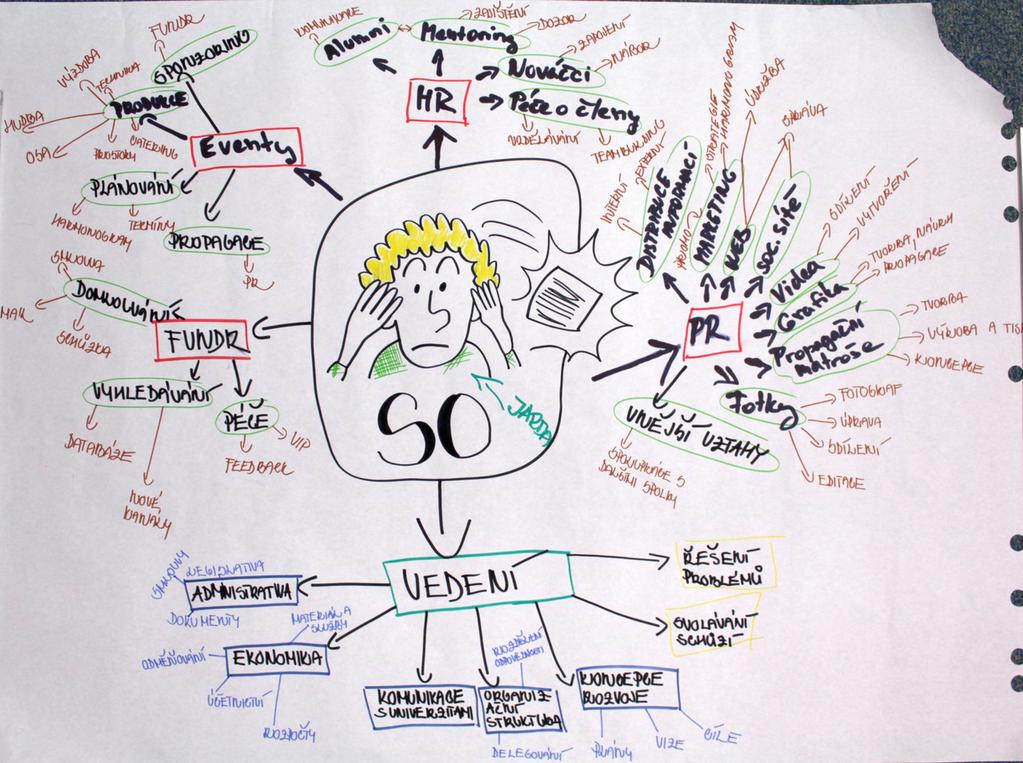 FUNDR
SPONZORING
VÝZDOBA
TECHNIKA
PRODUKCE
HUDBA
OSA
PROSTORY
CATERING
Eventy
PLÁNOVÁNÍ
HARMONOGRAM
TERMÍNY
PROPAGACE
PR
KOMUNIKACE
Alumni
ZAJIŠTĚNÍ
Mentoring
DOZOR
ZAPOJENÍ
Nováčci
NÁBOR
HR
Péče o členy
VZDĚLÁVÁNÍ
TEAMBUILDING
INTERNÍ
EXTERNÍ
DISTRIBUCE
INFORMACÍ
PROMO
STRATEGIE
HARMONOGRAM
MARKETING
ÚDRŽBA
WEB
SPRÁVA
SOC. SÍTĚ
SDÍLENÍ
VYTVOŘENÍ
Videa
TVORBA, NÁVRH
PROPAGACE
Grafika
PR
Propagační
matroše
TVORBA
VÝROBA A TISK
KONCEPCE
Fotky
FOTOGRAF
ÚPRAVA
SDÍLENÍ
EDITACE
VNĚJŠÍ VZTAHY
SPOLUPRÁCE S
DALŠÍMI SPOLKY
SMLOUVA
DOMLOUVÁNÍ
SCHŮZKA
FUNDR
VYHLEDÁVÁNÍ
DATABÁZE
NOVÉ
KANÁLY
PÉČE
VIP
FEEDBACK
SO
JARDA
VEDENÍ
ŘEŠENÍ
PROBLÉMŮ
SVOLÁVÁNÍ
SCHŮZÍ
STANOVY
LEGISLATIVA
ADMINISTRATIVA
DOKUMENTY
MATERIÁL A
SLUŽBY
ODMĚŇOVÁNÍ
EKONOMIKA
ÚČETNICTVÍ
ROZPOČTY
KOMUNIKACE
S UNIVERZITAMI
ROZDĚLENÍ
ODPOVĚDNOSTI
ORGANIZ-
AČNÍ
STRUKTURA
DELEGOVÁNÍ
KONCEPCE
ROZVOJE
PLÁNY
VIZE
CÍLE